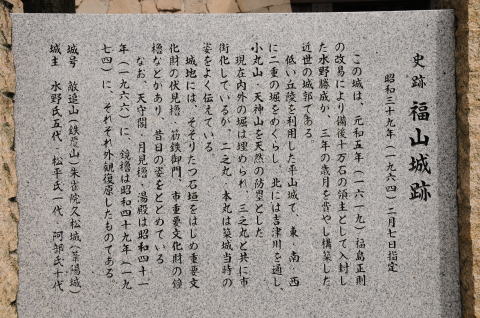 史跡 福山城跡
昭和三十九年(一九六四)二月七日指定
この城は、元和五年(一六一九)福島正則
の改易により備後十万石の領主として入封し
た水野勝成が、三年の歳月を費やし構築した
近世の城郭である。
低い丘陵を利用した平山城で、東・南・西
に二重の堀をめぐらし、北には吉津川を通し、
小丸山・天神山を天然の防塁とした
現在内外の堀は埋められ、三之丸と共に市
街化しているが、二之丸、本丸は築城当時の
姿をよく伝えている
城地には、そそりたつ石垣をはじめ重要文
化財の伏見櫓、筋鉄御門、市重要文化財の鐘
櫓などがあり、昔日の姿をとどめている
なお、天守閣、月見櫓、湯殿は昭和四十一
年(一九六六)に、鏡櫓は昭和四十九年(一九
七四)に、それぞれ外観復原したものである。
城号 敵追山(鉄覆山)朱雀院久松城(葦陽城)
城主 水野氏五代、松平氏一代、阿部氏十代